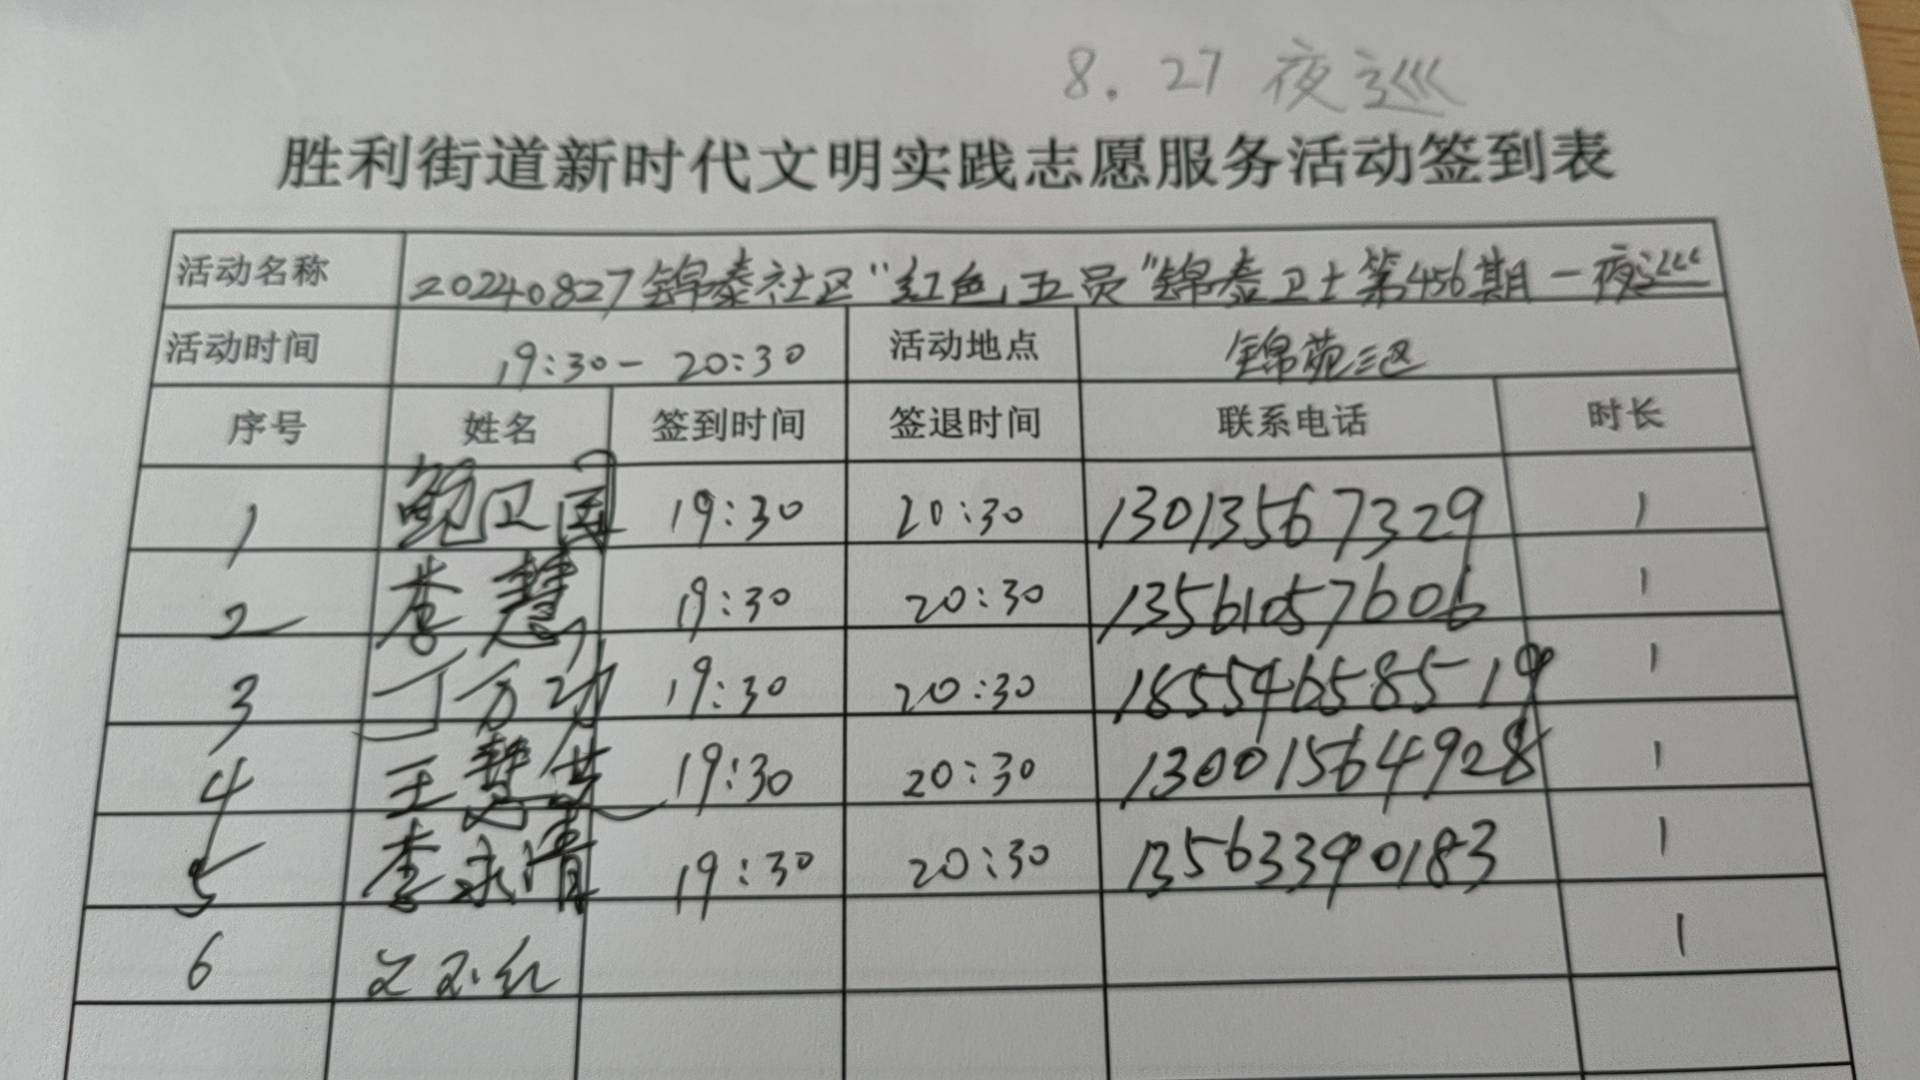 8.27 夜巡
胜利街道新时代文明实践志愿服务活动签到表
活动名称 20240827锦泰社区"红色五员"锦泰卫士第456期一夜巡
活动时间 19:30-20:30 活动地点 锦苑三区
序号 姓名 签到时间 签退时间 联系电话 时长
1 鲍卫国 19:30 20:30 13013567329 1
2 李慧 19:30 20:30 13561057606 1
3 丁方功 19:30 20:30 18554658519 1
4 王慧 19:30 20:30 13001564928 1
5 李永清 19:30 20:30 13563390183 1
6 红 1